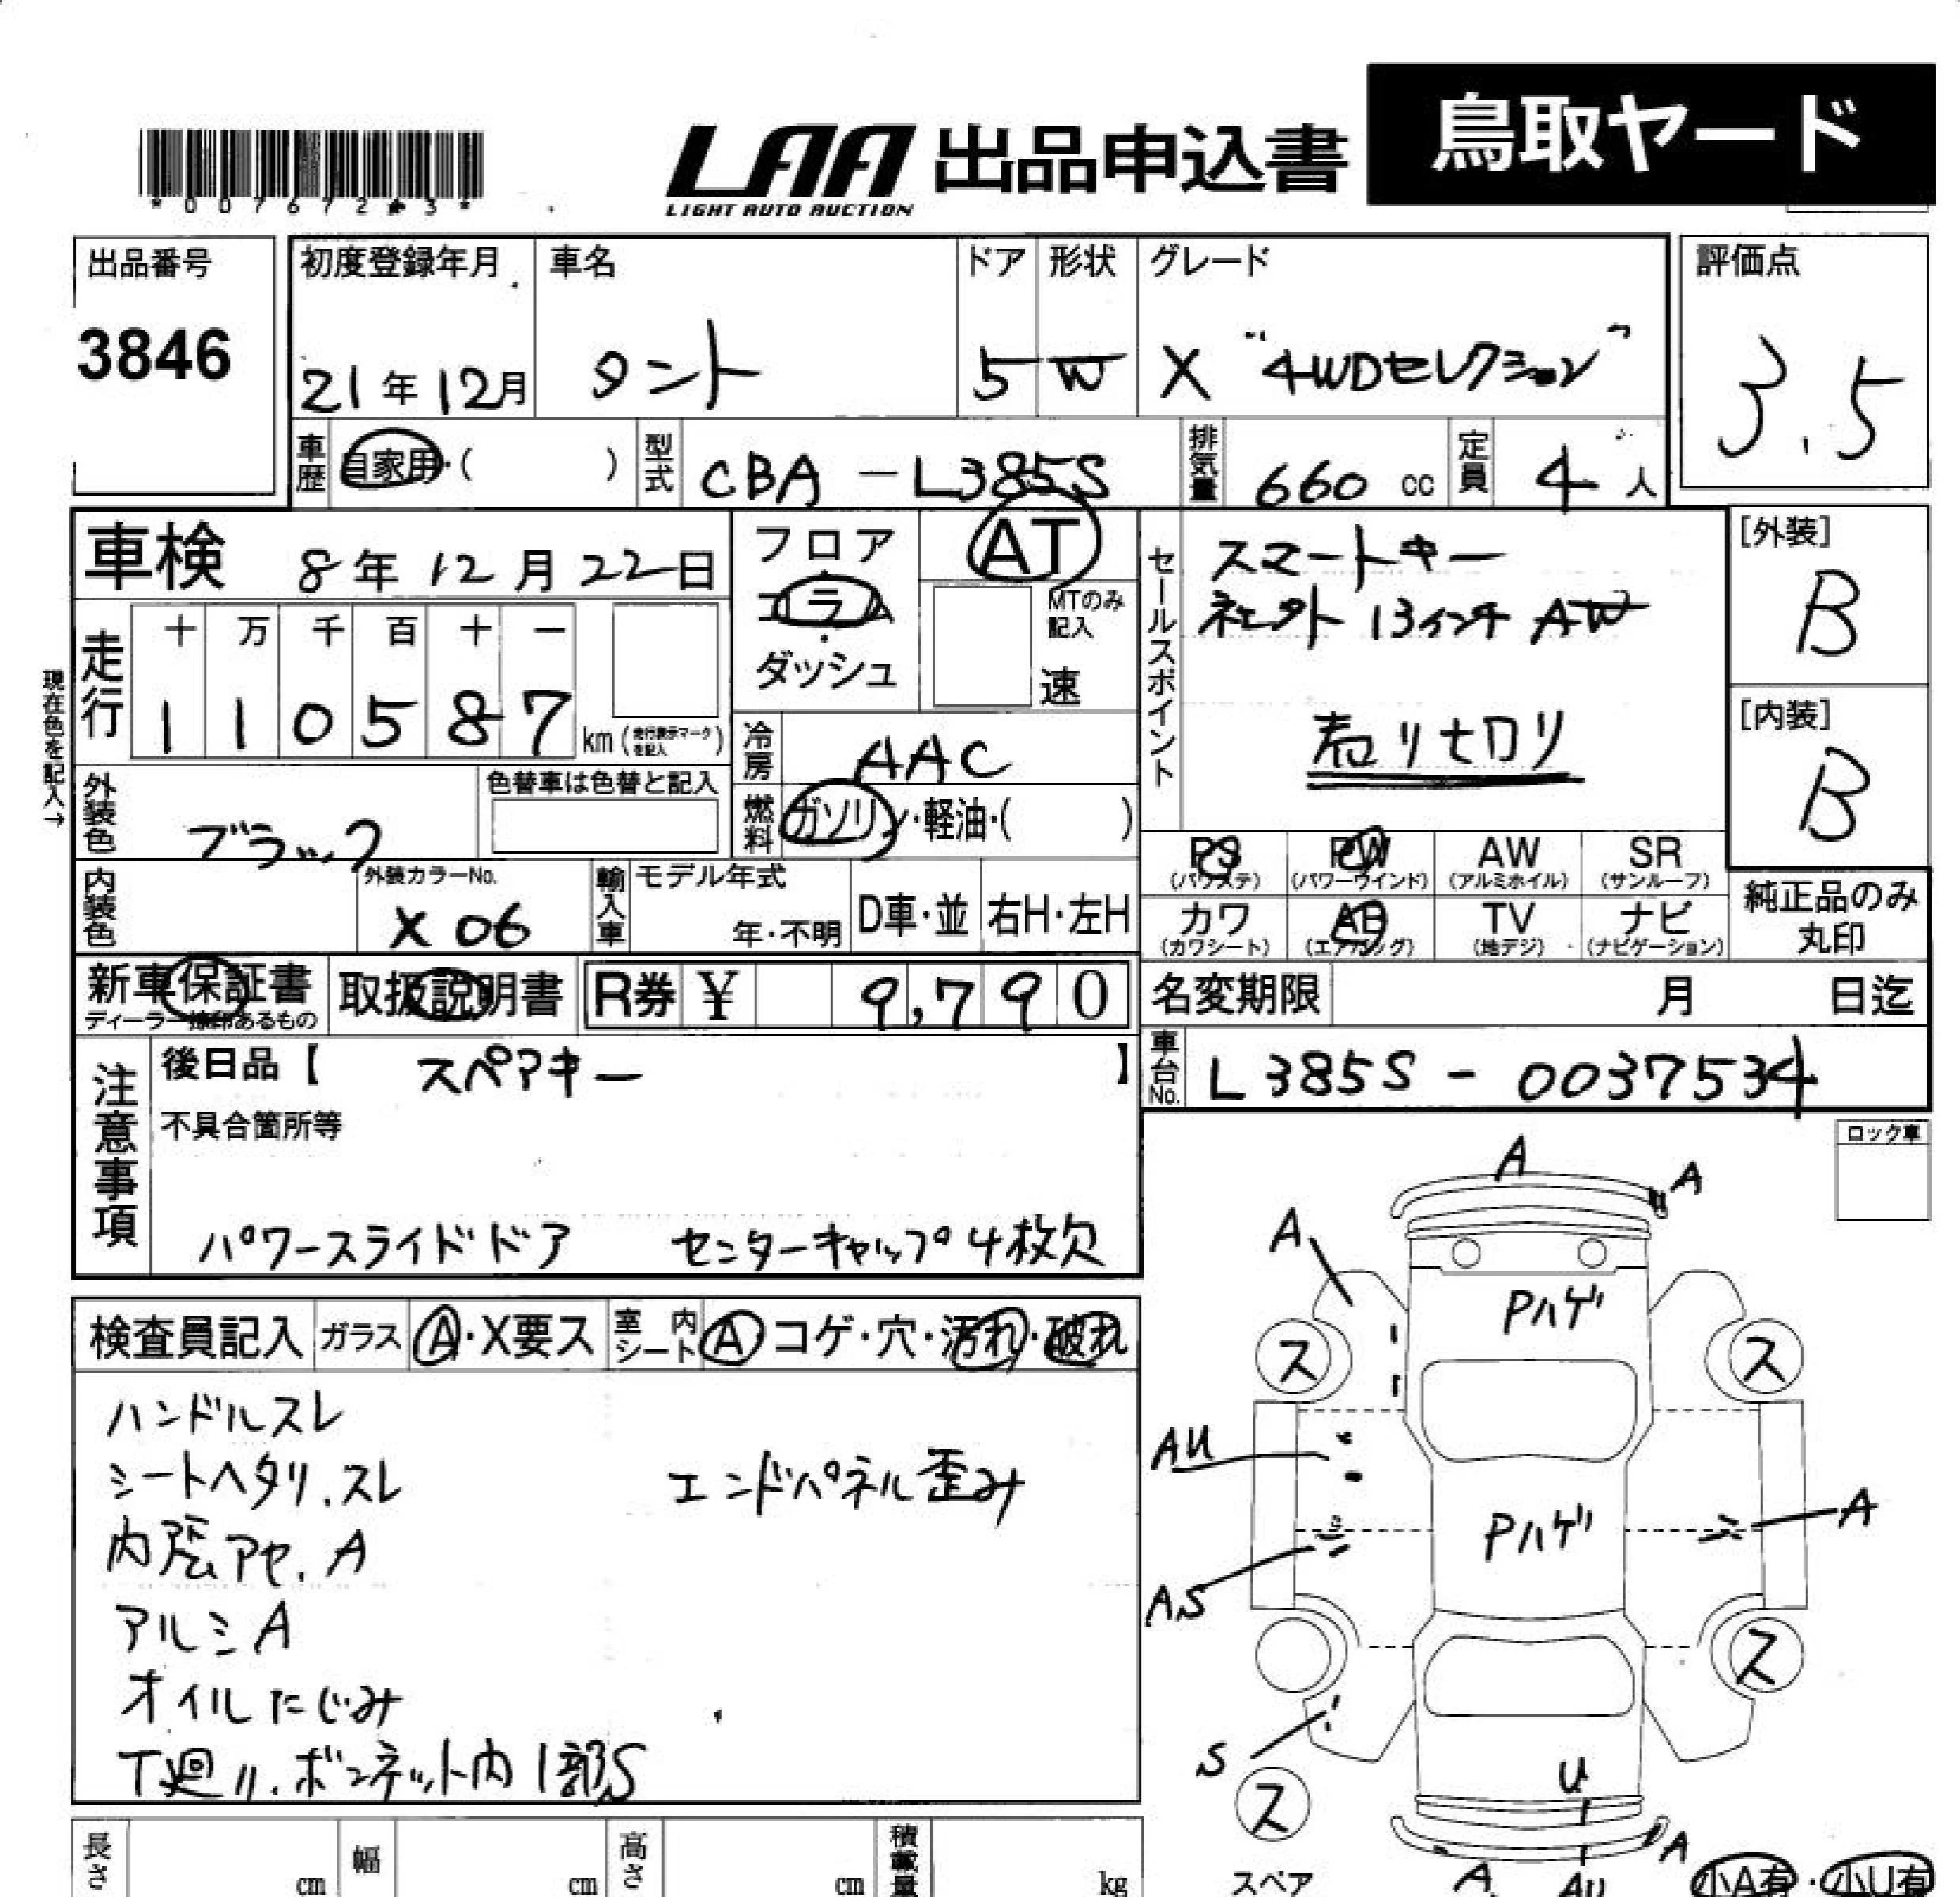 鳥取ヤード
LAA 出品申込書
LIGHT AUTO AUCTION
出品番号 3846
初度登録年月 21年12月
車名 タント
ドア 5
形状 W
グレード X "4WDセレクション"
評価点 3.5
車歴 自家用・( )
型式 CBA-L385S
排気量 660 cc
定員 4人
車検 8年12月22日
フロア・コラム・ダッシュ
AT
MTのみ記入
速
セールスポイント
スマートキー
13インチ AW
売り切り
[外装] B
[内装] B
現在色を記入→
走行 十 万 千 百 十 一
1 1 0 5 8 7 km (走行表示マークを記入)
冷房 AAC
燃料 ガソリン・軽油・( )
外装色 ブラック
色替車は色替と記入
内装色
外装カラーNo. X06
輸入車 モデル年式 年・不明
D車・並
右H・左H
PS (パワステ) PW (パワーウインド) AW (アルミホイル) SR (サンルーフ)
カワ (カワシート) AB (エアバッグ) TV (地デジ) ナビ (ナビゲーション)
純正品のみ丸印
新車保証書
ディーラー捺印あるもの
取扱説明書
R券 ¥ 9,790
名変期限 月 日迄
車台No. L385S-0037534
注意事項
後日品【 スペアキー 】
不具合箇所等
パワースライドドア センターキャップ4枚欠
検査員記入 ガラス A・X要ス 室内シート A コゲ・穴・汚れ・破れ
ハンドルスレ
シートヘタリ.スレ エンドパネル歪み
内張アセ.A
アルミA
オイルにじみ
下廻り.ボンネット内1部S
ロック車
A
A
A
Pハゲ
ス ス
AU
Pハゲ
A
AS
ス
S
U
ス
スペア
A
A AU
小A有・小U有
長さ cm 幅 cm 高さ cm 積載量 kg